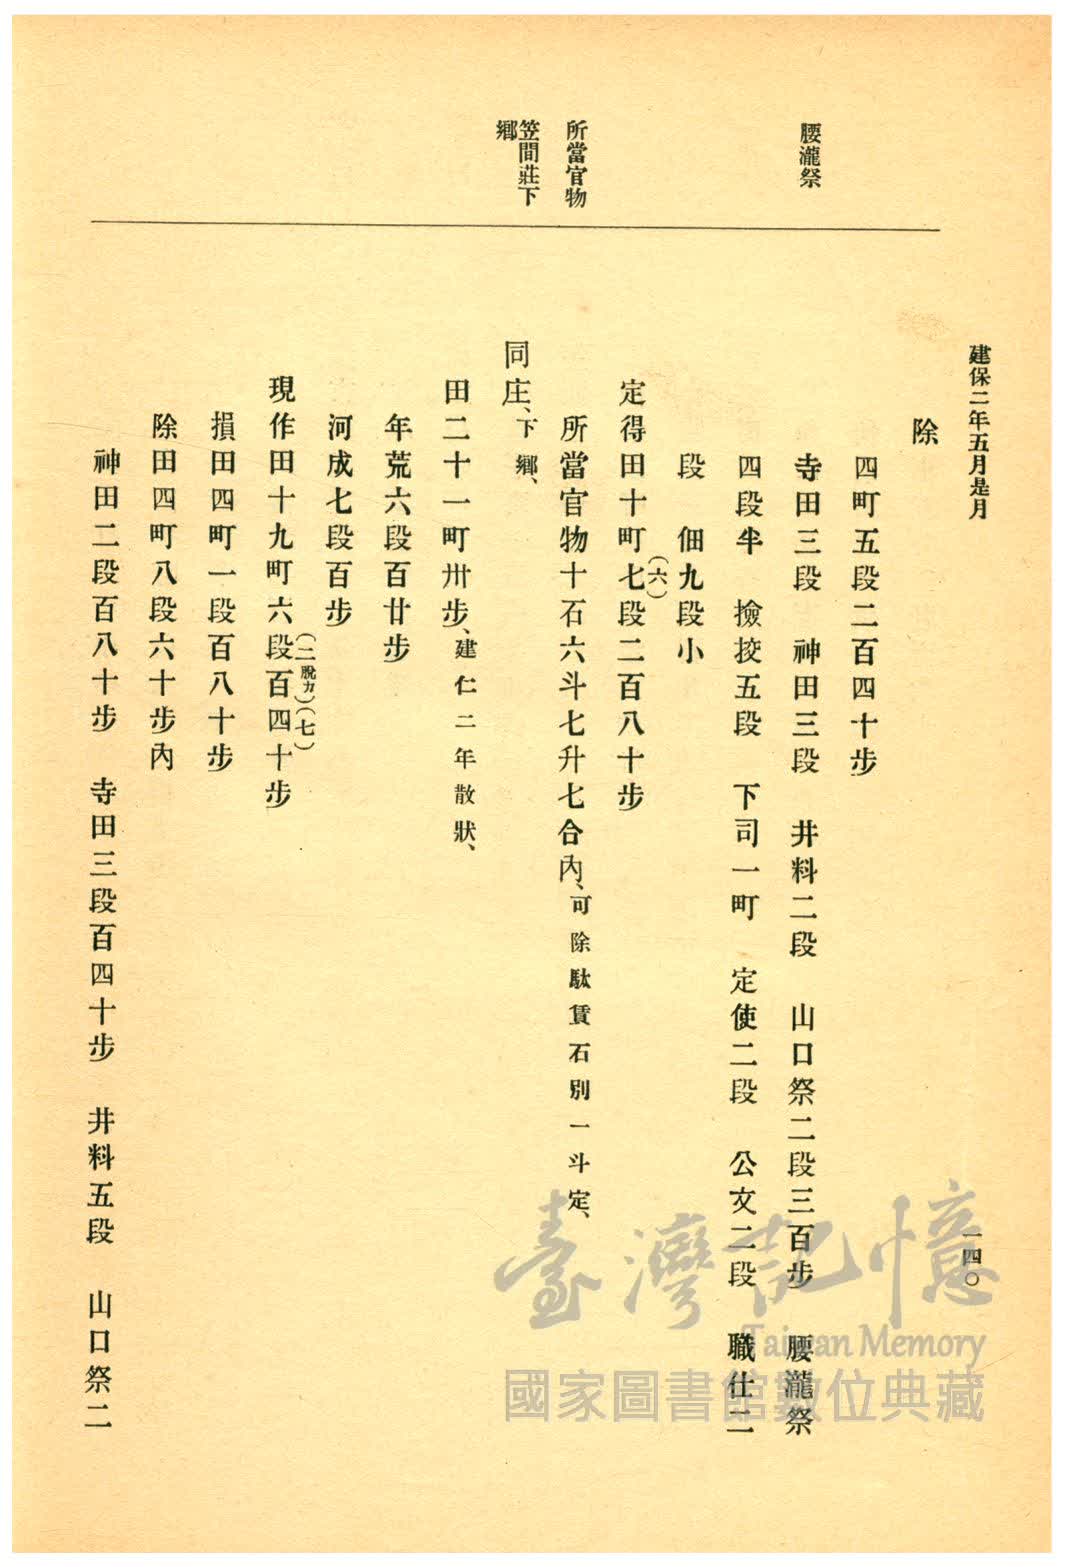 建保二年五月是月
一四〇
腰瀧祭
所當官物
笠間莊下
鄕
除
四町五段二百四十步
寺田三段　神田三段　井料二段　山口祭二段三百步　腰瀧祭
四段半　撿挍五段　下司一町　定使二段　公文二段　職仕二
段　佃九段小
（六）
定得田十町七段二百八十步
所當官物十石六斗七升七合內、可除駄賃石別一斗定、
同庄、下鄕、
田二十一町卅步、建仁二年散狀、
年荒六段百廿步
河成七段百步
（二脫カ）（七）
現作田十九町六段百四十步
損田四町一段百八十步
除田四町八段六十步內
神田二段百八十步　寺田三段百四十步　井料五段　山口祭二
臺灣記憶
Taiwan Memory
國家圖書館數位典藏